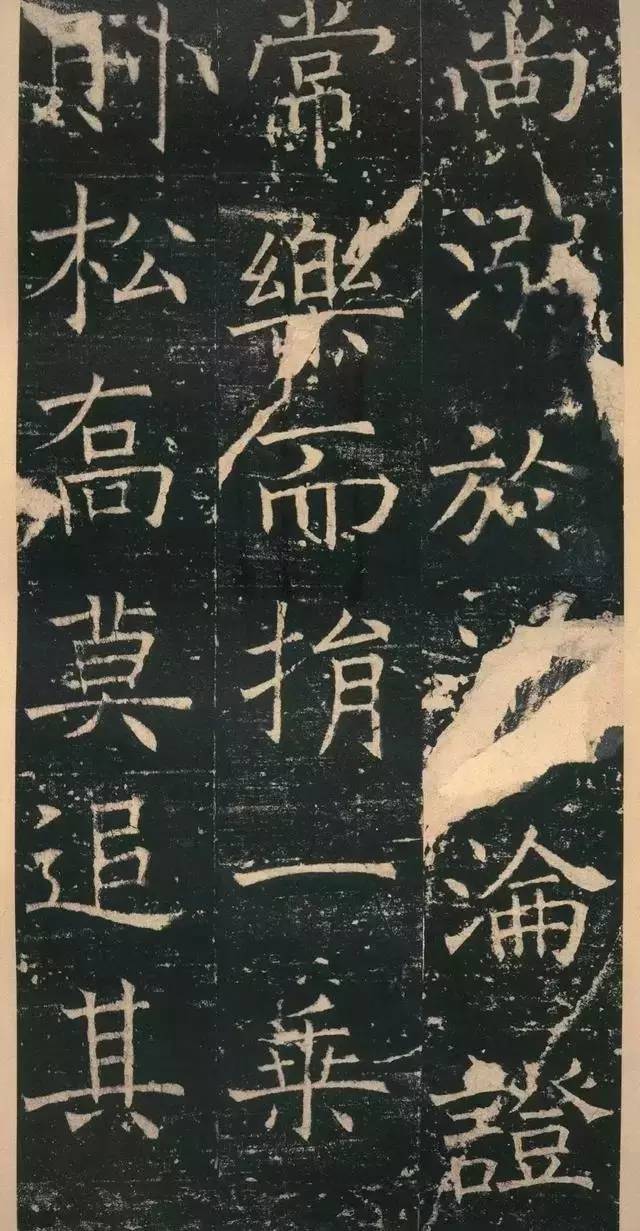 尚溺於淪證
常樂而捐一乘
松喬莫追其